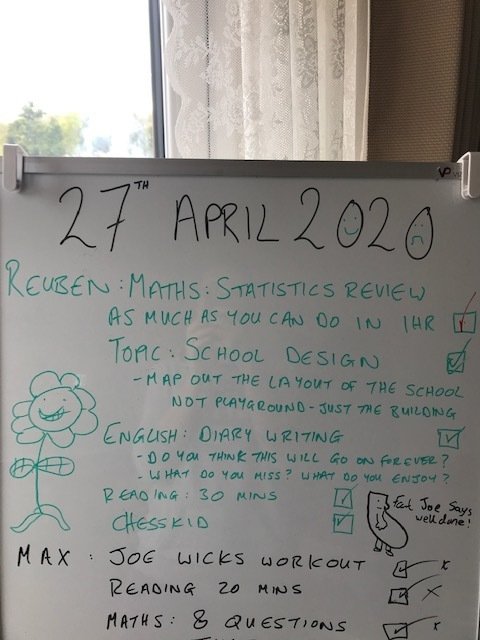 27TH APRIL 2020
REUBEN: MATHS: STATISTICS REVIEW
AS MUCH AS YOU CAN DO IN 1HR
TOPIC: SCHOOL DESIGN
- MAP OUT THE LAYOUT OF THE SCHOOL
NOT PLAYGROUND - JUST THE BUILDING
ENGLISH: DIARY WRITING
- DO YOU THINK THIS WILL GO ON FOREVER?
- WHAT DO YOU MISS? WHAT DO YOU ENJOY?
READING: 30 MINS
CHESSKID
Joe Says
well done!
MAX: JOE WICKS WORKOUT
READING 20 MINS
MATHS: 8 QUESTIONS